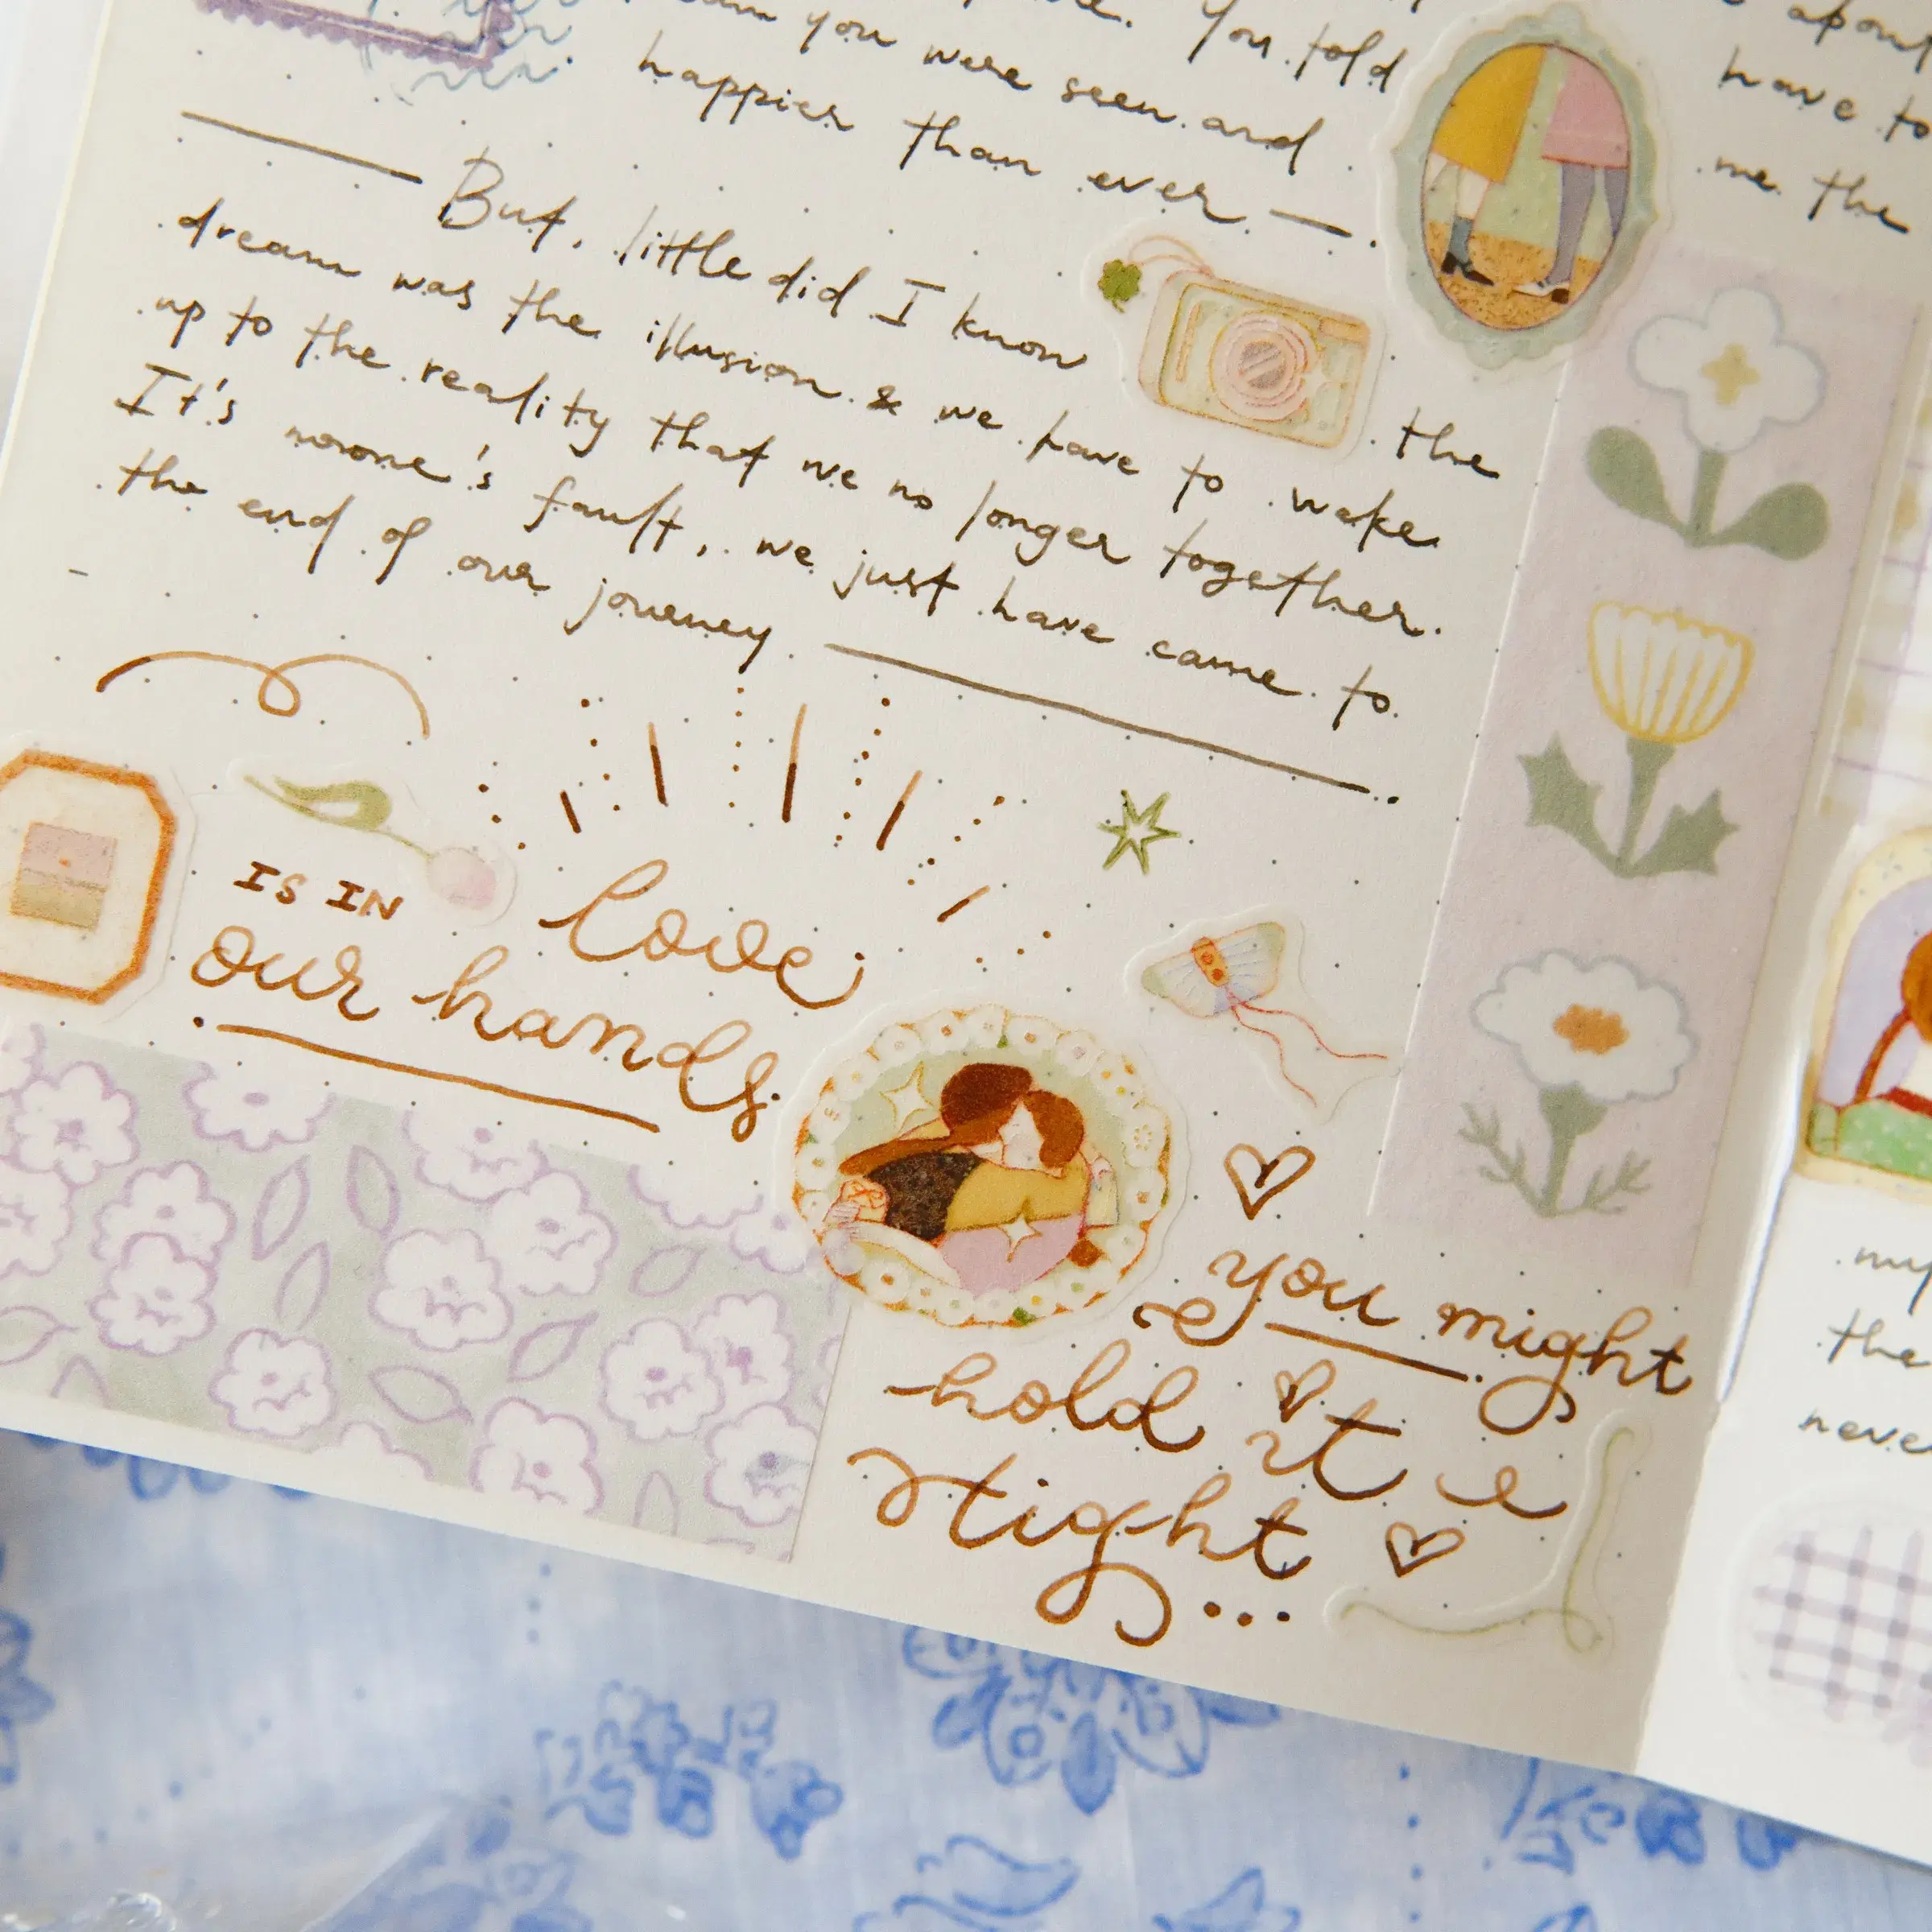 You told
you were seen and
happier than ever
But, little did I know the
dream was the illusion & we have to wake
up to the reality that we no longer together.
It's noone's fault, we just have came to
the end of our journey
love
IS IN
our hands
you might
hold it
tight...
about
have to
me the
my
the
neve